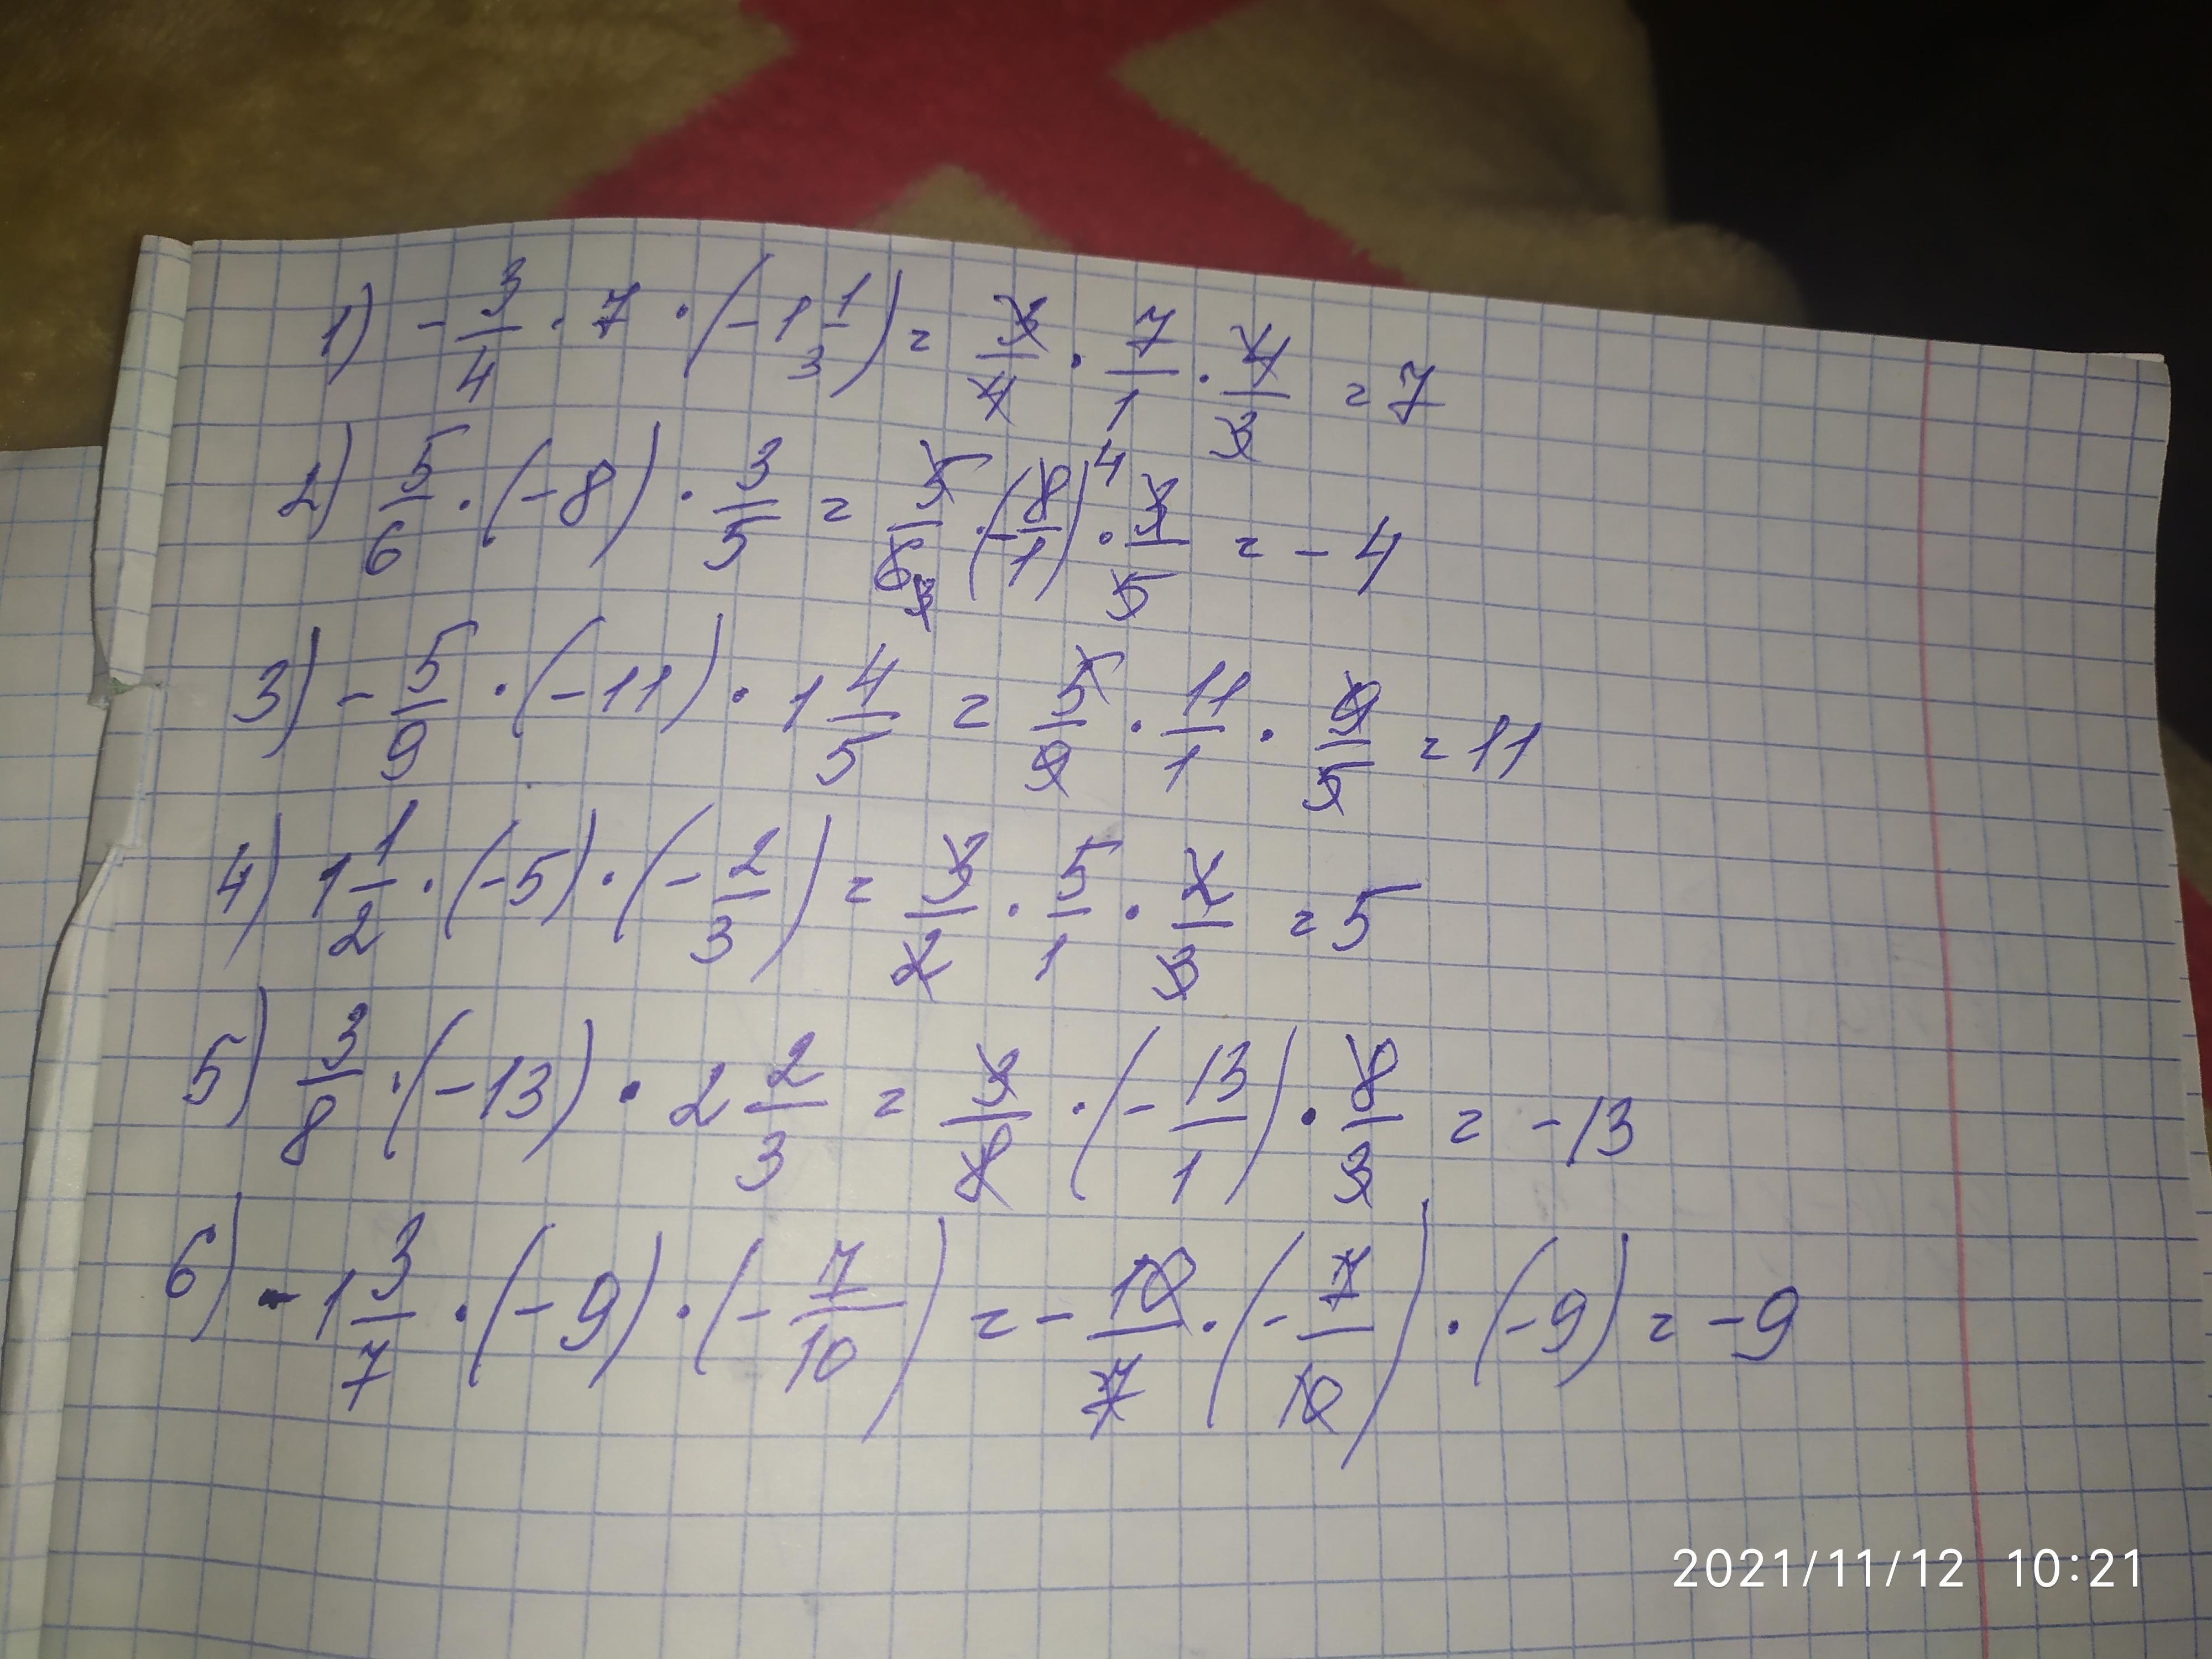 1) -3/4 · 7 · (-1 1/3) = 3/4 · 7/1 · 4/3 = 7
2) 5/6 · (-8) · 3/5 = 5/6 3 · (-8/1) 4 · 3/5 = -4
3) -5/9 · (-11) · 1 4/5 = 5/9 · 11/1 · 9/5 = 11
4) 1 1/2 · (-5) · (-2/3) = 3/2 · 5/1 · 2/3 = 5
5) 3/8 · (-13) · 2 2/3 = 3/8 · (-13/1) · 8/3 = -13
6) -1 3/7 · (-9) · (-7/10) = -10/7 · (-7/10) · (-9) = -9
2021/11/12 10:21